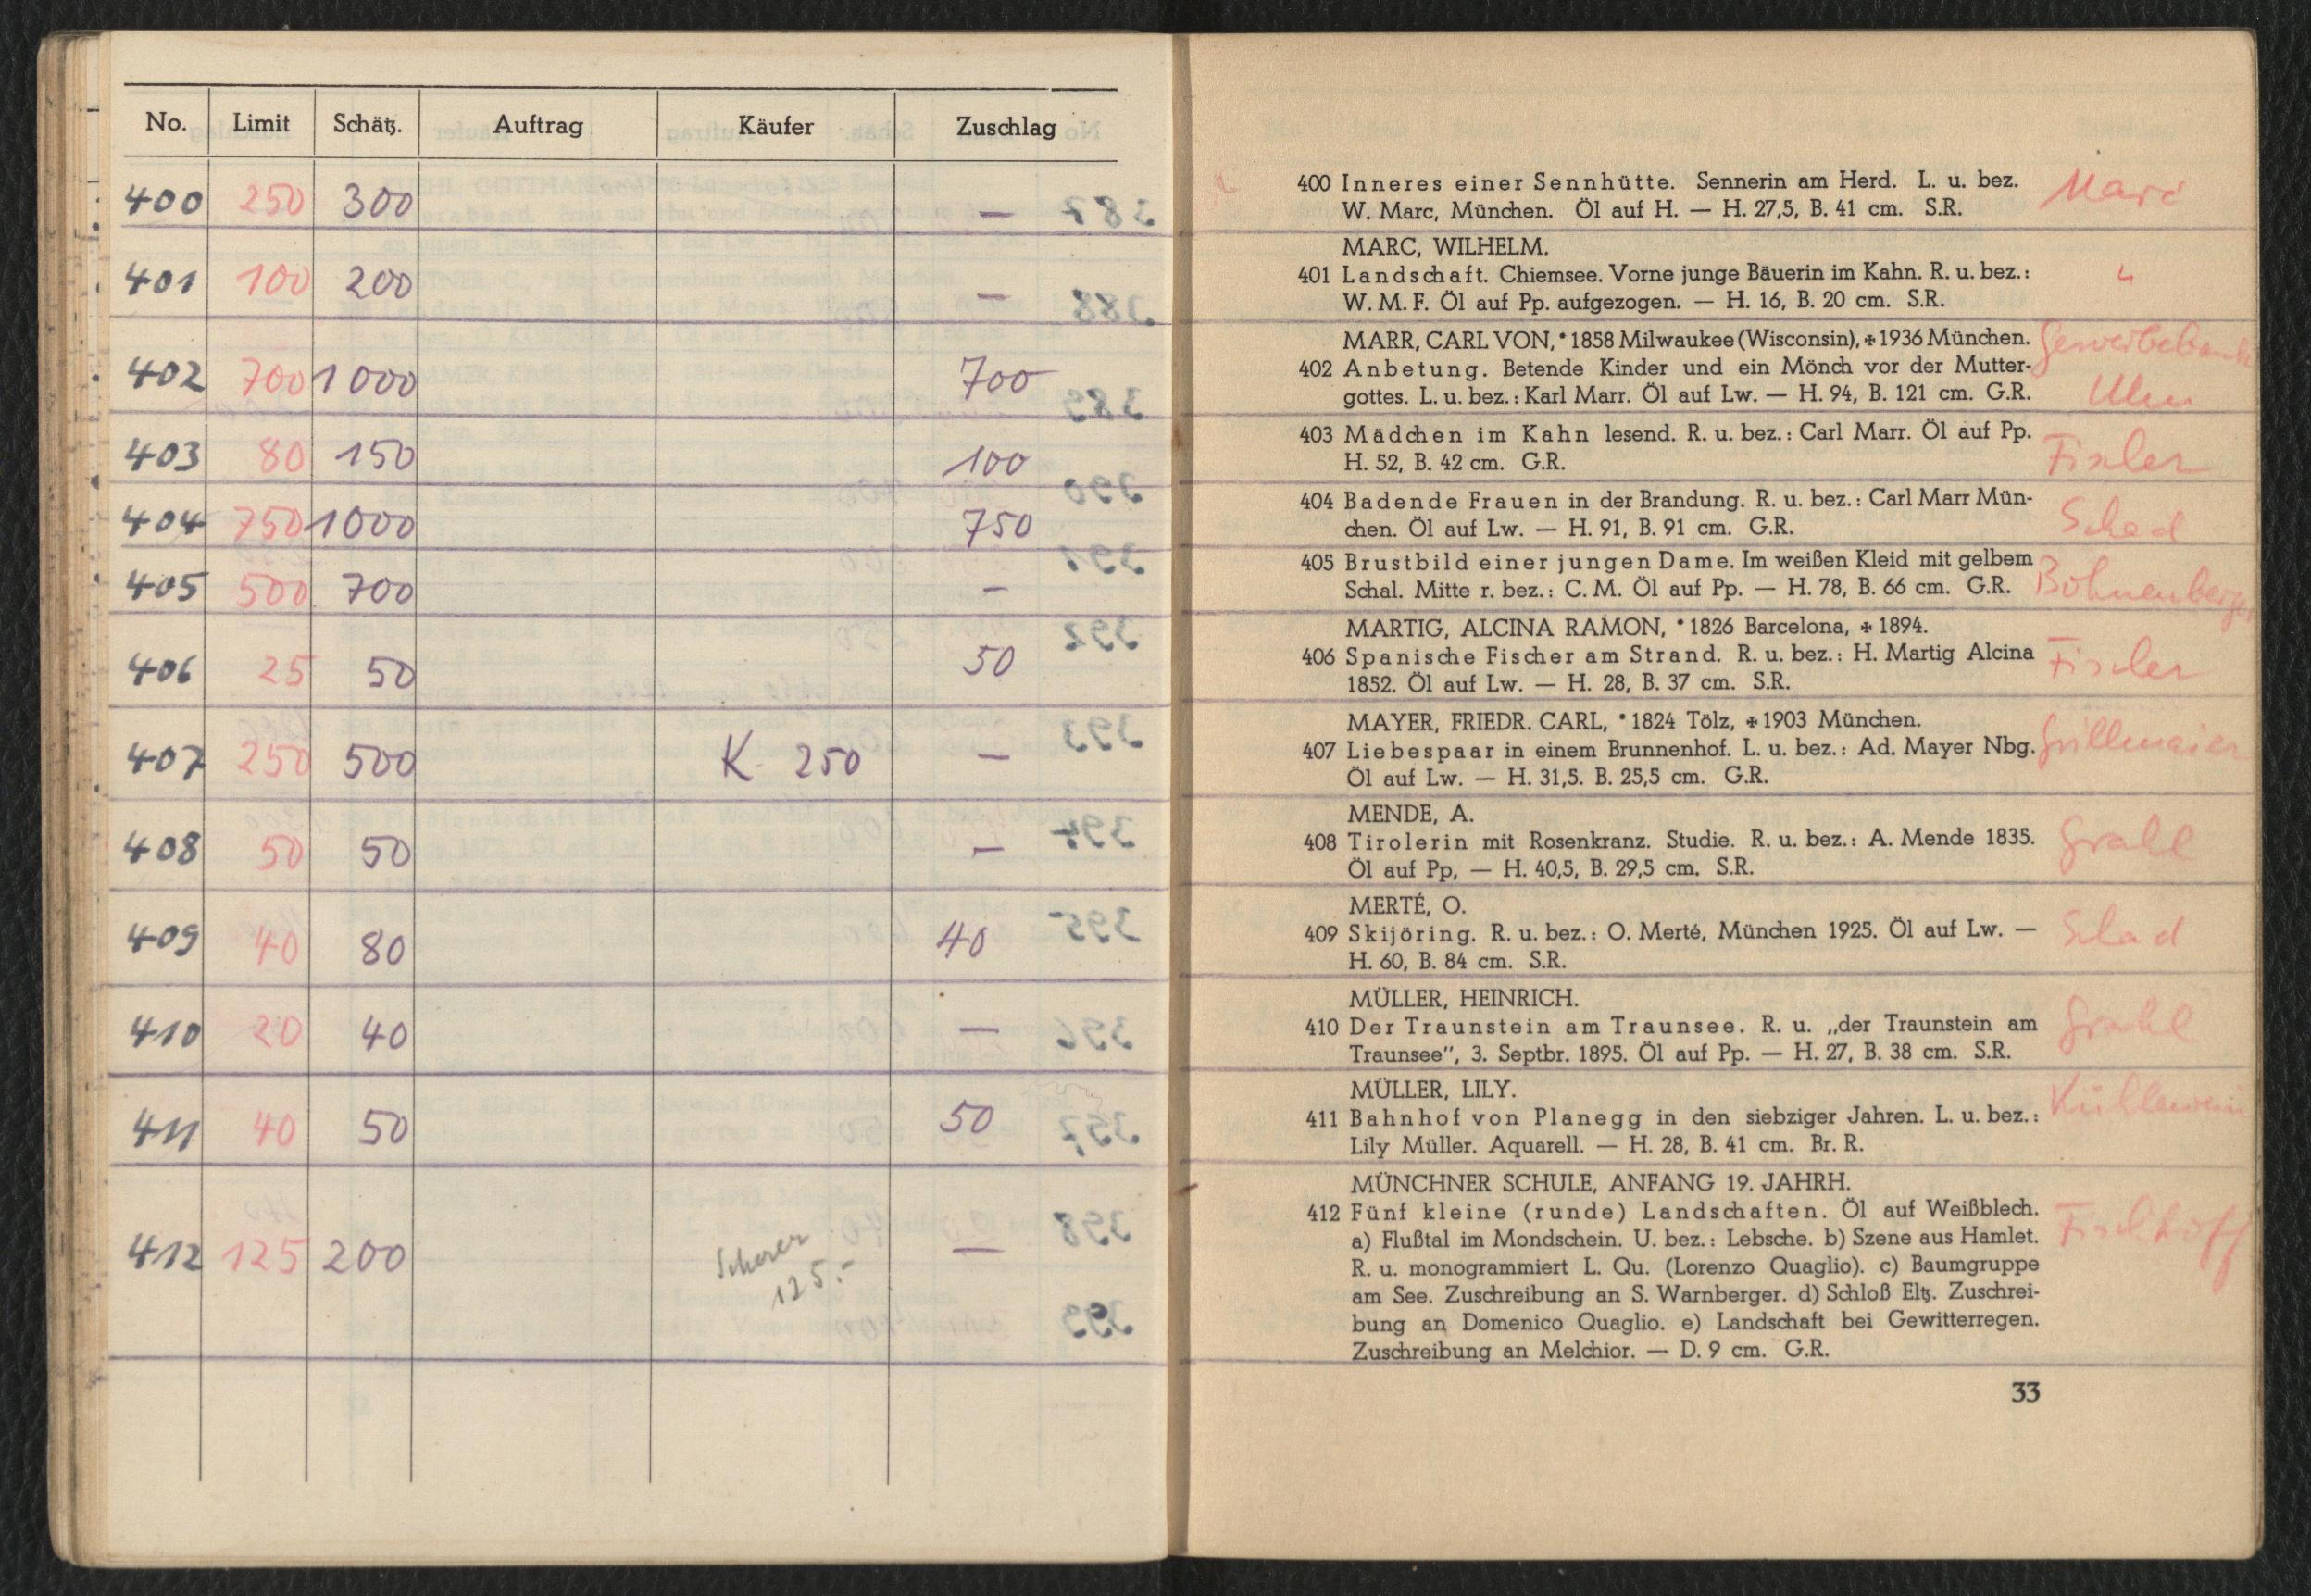 No. Limit Schätz. Auftrag Käufer Zuschlag
400 250 300 —
401 100 200 —
402 700 1000 700
403 80 150 100
404 750 1000 750
405 500 700 —
406 25 50 50
407 250 500 K 250 —
408 50 50 —
409 40 80 40
410 20 40 —
411 40 50 50
412 125 200 Scherer —
125.-
400 Inneres einer Sennhütte. Sennerin am Herd. L. u. bez. Marc
W. Marc, München. Öl auf H. — H. 27,5, B. 41 cm. S.R.
MARC, WILHELM.
401 Landschaft. Chiemsee. Vorne junge Bäuerin im Kahn. R. u. bez.: "
W. M. F. Öl auf Pp. aufgezogen. — H. 16, B. 20 cm. S.R.
MARR, CARL VON, * 1858 Milwaukee (Wisconsin), ✠ 1936 München. Gewerbebank
402 Anbetung. Betende Kinder und ein Mönch vor der Mutter-
gottes. L. u. bez.: Karl Marr. Öl auf Lw. — H. 94, B. 121 cm. G.R. Ulm
403 Mädchen im Kahn lesend. R. u. bez.: Carl Marr. Öl auf Pp.
H. 52, B. 42 cm. G.R. Fixler
404 Badende Frauen in der Brandung. R. u. bez.: Carl Marr Mün-
chen. Öl auf Lw. — H. 91, B. 91 cm. G.R. Schad
405 Brustbild einer jungen Dame. Im weißen Kleid mit gelbem
Schal. Mitte r. bez.: C. M. Öl auf Pp. — H. 78, B. 66 cm. G.R. Bohnenberger
MARTIG, ALCINA RAMON, * 1826 Barcelona, ✠ 1894.
406 Spanische Fischer am Strand. R. u. bez.: H. Martig Alcina Fixler
1852. Öl auf Lw. — H. 28, B. 37 cm. S.R.
MAYER, FRIEDR. CARL, * 1824 Tölz, ✠ 1903 München.
407 Liebespaar in einem Brunnenhof. L. u. bez.: Ad. Mayer Nbg. Grillmaier
Öl auf Lw. — H. 31,5. B. 25,5 cm. G.R.
MENDE, A.
408 Tirolerin mit Rosenkranz. Studie. R. u. bez.: A. Mende 1835. Grahl
Öl auf Pp, — H. 40,5, B. 29,5 cm. S.R.
MERTÉ, O.
409 Skijöring. R. u. bez.: O. Merté, München 1925. Öl auf Lw. — Schad
H. 60, B. 84 cm. S.R.
MÜLLER, HEINRICH.
410 Der Traunstein am Traunsee. R. u. „der Traunstein am Grahl
Traunsee", 3. Septbr. 1895. Öl auf Pp. — H. 27, B. 38 cm. S.R.
MÜLLER, LILY.
411 Bahnhof von Planegg in den siebziger Jahren. L. u. bez.: Kühlewein
Lily Müller. Aquarell. — H. 28, B. 41 cm. Br. R.
MÜNCHNER SCHULE, ANFANG 19. JAHRH.
412 Fünf kleine (runde) Landschaften. Öl auf Weißblech. Fischhoff
a) Flußtal im Mondschein. U. bez.: Lebsche. b) Szene aus Hamlet.
R. u. monogrammiert L. Qu. (Lorenzo Quaglio). c) Baumgruppe
am See. Zuschreibung an S. Warnberger. d) Schloß Eltz. Zuschrei-
bung an Domenico Quaglio. e) Landschaft bei Gewitterregen.
Zuschreibung an Melchior. — D. 9 cm. G.R.
33